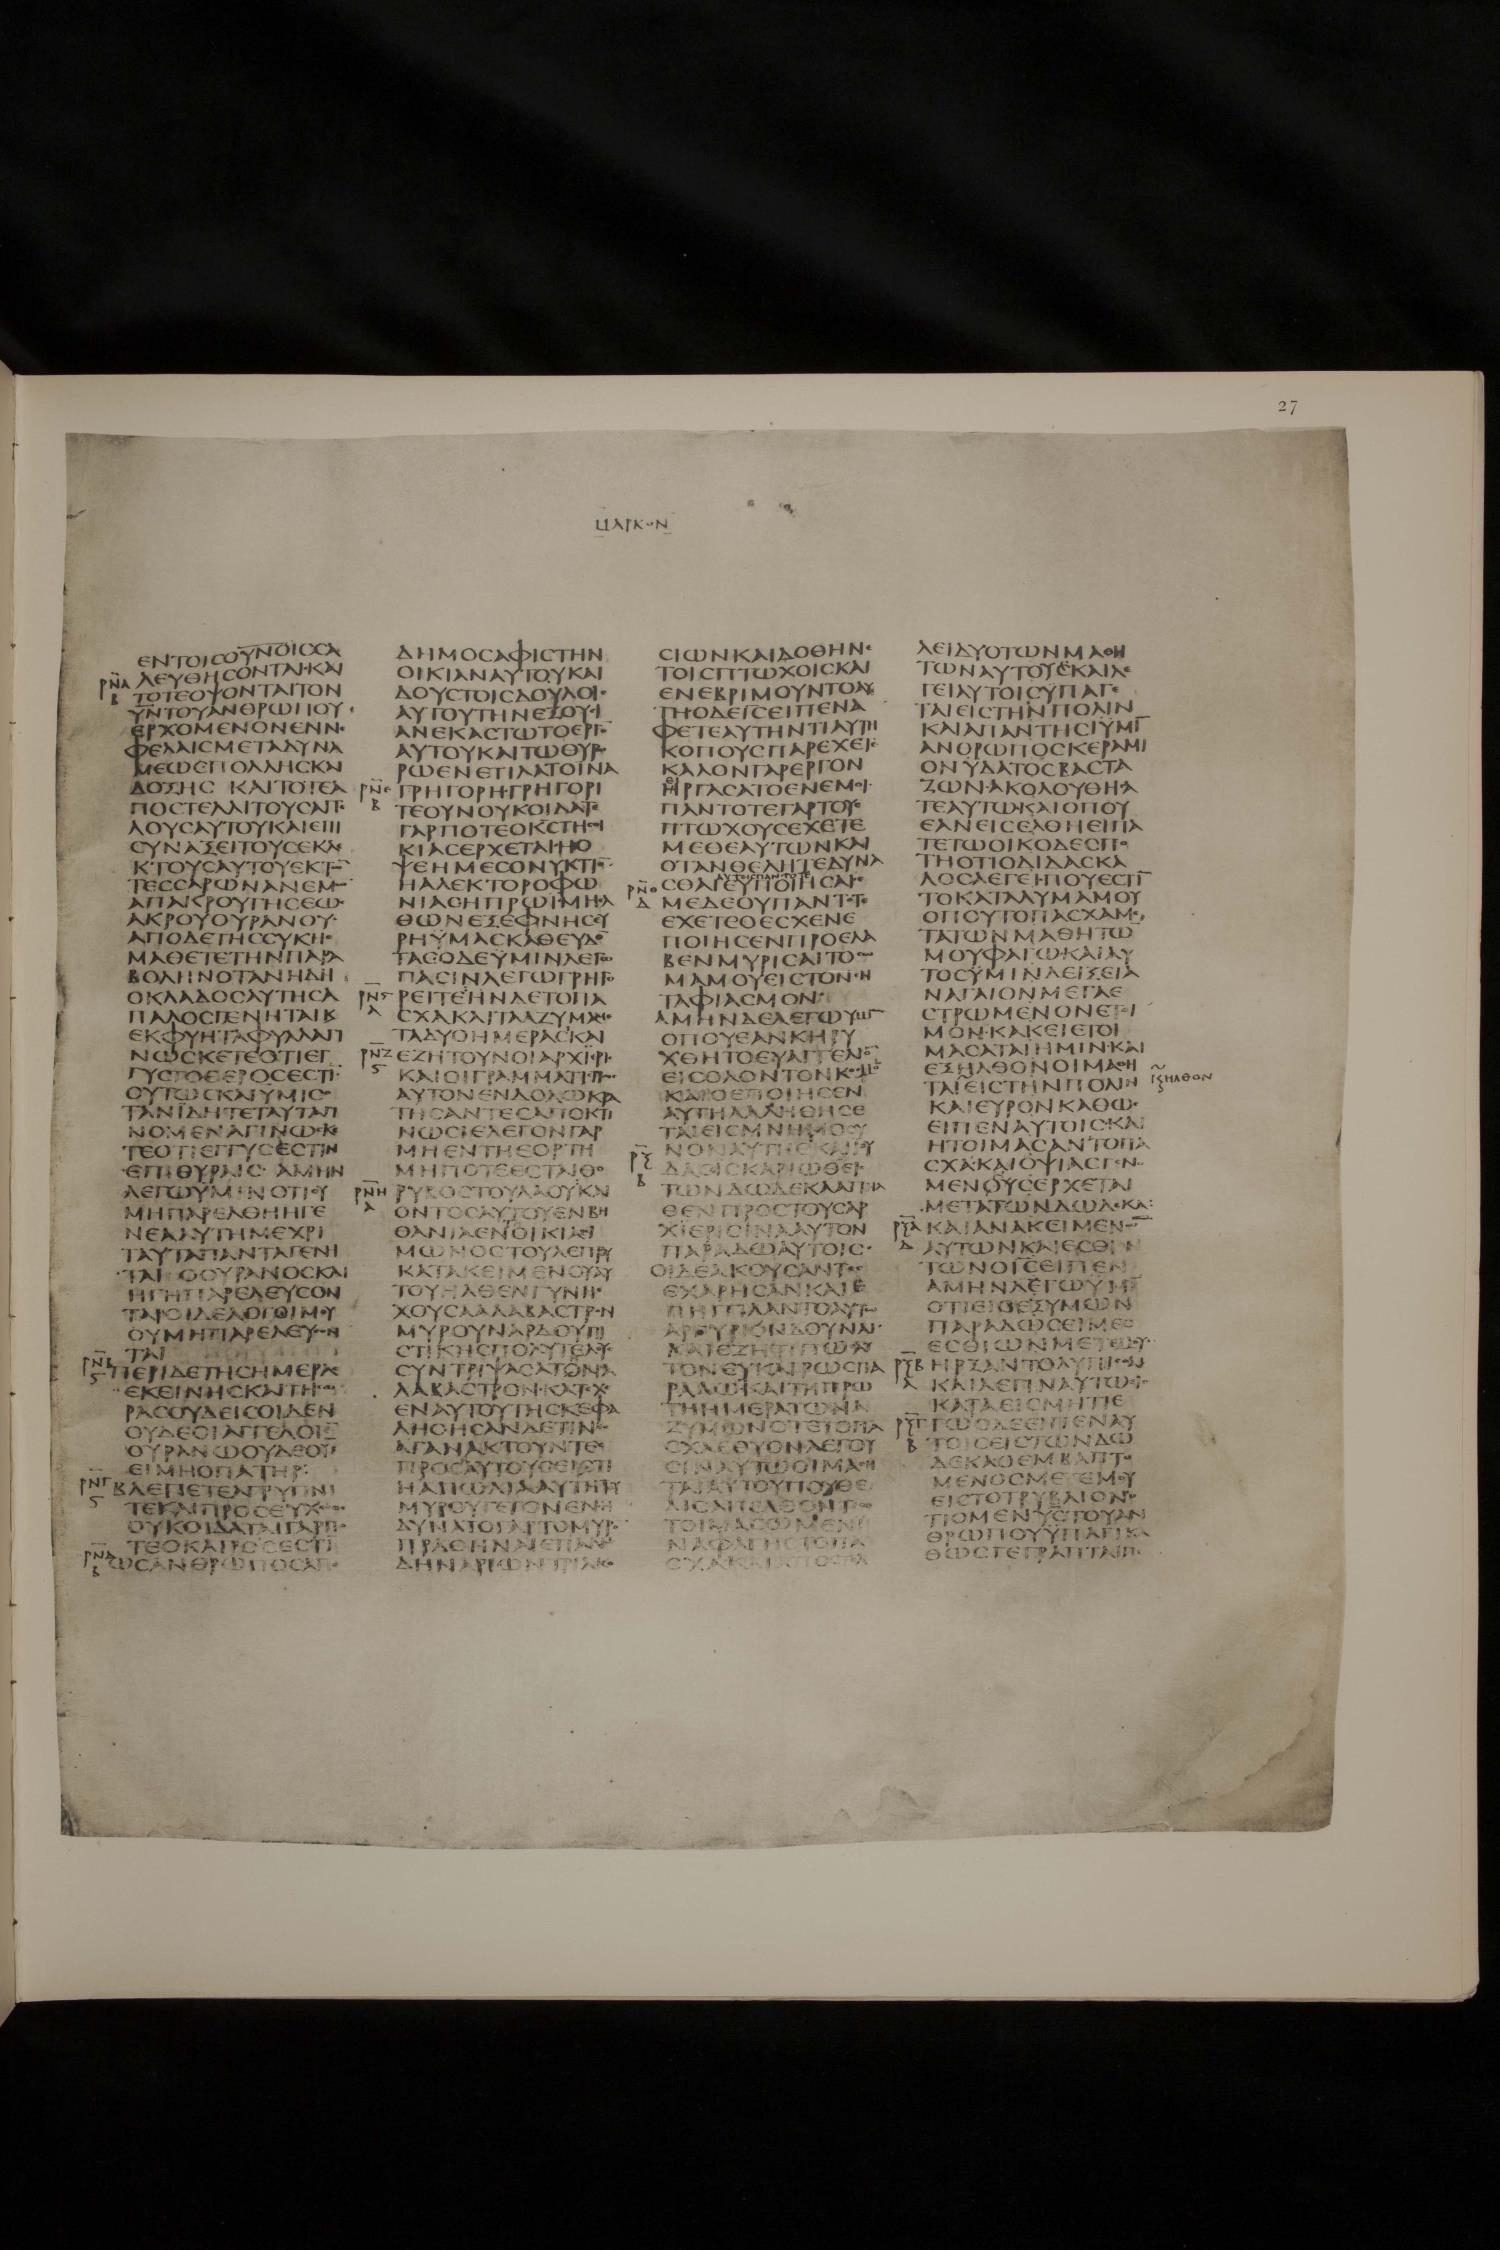 27
ΜΑΡΚΟΝ
ΕΝΤΟΙCΟΥΝΟΙCCΑ
ΡΝΑ
ΛΕΥΘΗCΟΝΤΑΙ·ΚΑΙ
Β
ΤΟΤΕΟΨΟΝΤΑΙΤΟΝ
ΥΝΤΟΥΑΝΘΡΩΠΟΥ
ΕΡΧΟΜΕΝΟΝΕΝΝΕ
ΦΕΛΑΙCΜΕΤΑΔΥΝΑ
ΜΕΩCΠΟΛΛΗCΚΑΙ
ΔΟΞΗC ΚΑΙΤΟΤΕΑ
ΠΟCΤΕΛΛΙΤΟΥCΑΓΓΕ
ΛΟΥCΑΥΤΟΥΚΑΙΕΠΙ
CΥΝΑΞΕΙΤΟΥCΕΚΛΕ
ΚΤΟΥCΑΥΤΟΥΕΚΤΩ
ΤΕCCΑΡΩΝΑΝΕΜΩ
ΑΠΑΚΡΟΥΓΗCΕΩC
ΑΚΡΟΥΟΥΡΑΝΟΥ·
ΑΠΟΔΕΤΗCCΥΚΗC
ΜΑΘΕΤΕΤΗΝΠΑΡΑ
ΒΟΛΗΝΟΤΑΝΗΔΗ
ΟΚΛΑΔΟCΑΥΤΗCΑ
ΠΑΛΟCΓΕΝΗΤΑΙΚ
ΕΚΦΥΗΤΑΦΥΛΛΑΓΙ
ΝΩCΚΕΤΕΟΤΙΕΓ
ΓΥCΤΟΘΕΡΟCΕCΤΙ
ΟΥΤΩCΚΑΙΥΜΙC
ΤΑΝΙΔΗΤΕΤΑΥΤΑΓΙ
ΝΟΜΕΝΑΓΙΝΩCΚΕ
ΤΕΟΤΙΕΓΓΥCΕCΤΙΝ
ΕΠΙΘΥΡΑΙC· ΑΜΗΝ
ΛΕΓΩΥΜΙΝΟΤΙΟΥ
ΜΗΠΑΡΕΛΘΗΗΓΕ
ΝΕΑΑΥΤΗΜΕΧΡΙ
ΤΑΥΤΑΠΑΝΤΑΓΕΝΙ
ΤΑΙ ΟΟΥΡΑΝΟCΚΑΙ
ΗΓΗΠΑΡΕΛΕΥCΟΝ
ΤΑΙ·ΟΙΔΕΛΟΓΟΙΜΟΥ
ΟΥΜΗΠΑΡΕΛΕΥCΟΝ
ΤΑΙ
ΡΝΒ
ΠΕΡΙΔΕΤΗCΗΜΕΡΑC
ΕΚΕΙΝΗCΚΑΙΤΗCΩ
ΡΑCΟΥΔΕΙCΟΙΔΕΝ
ΟΥΔΕΟΙΑΓΓΕΛΟΙΕ
ΟΥΡΑΝΩΟΥΔΕΟΥC
ΕΙΜΗΟΠΑΤΗΡ:
ΡΝΓ
ΒΛΕΠΕΤΕΑΓΡΥΠΝΙ
ΤΕΚΑΙΠΡΟCΕΥΧΕCΘΕ
ΟΥΚΟΙΔΑΤΑΙΓΑΡΠΟ
ΤΕΟΚΑΙΡΟCΕCΤΙ
ΡΝΔ
ΩCΑΝΘΡΩΠΟCΑΠΟ
Β
ΔΗΜΟCΑΦΙCΤΗΝ
ΟΙΚΙΑΝΑΥΤΟΥΚΑΙ
ΔΟΥCΤΟΙCΔΟΥΛΟΙC
ΑΥΤΟΥΤΗΝΕΞΟΥCΙ
ΑΝΕΚΑCΤΩΤΟΕΡΓΟ
ΑΥΤΟΥΚΑΙΤΩΘΥΡΩ
ΡΩΕΝΕΤΙΛΑΤΟΙΝΑ
ΡΝΕ
ΓΡΗΓΟΡΗ·ΓΡΗΓΟΡΙ
Β
ΤΕΟΥΝΟΥΚΟΙΔΑΤΕ
ΓΑΡΠΟΤΕΟΚCΤΗCΟΙ
ΚΙΑCΕΡΧΕΤΑΙ·ΗΟ
ΨΕΗΜΕCΟΝΥΚΤΙΟ
ΗΑΛΕΚΤΟΡΟΦΩ
ΝΙΑCΗΠΡΩΙΜΗΕΛ
ΘΩΝΕΞΕΦΝΗCΕΥ
ΡΗΥΜΑCΚΑΘΕΥΔΟ
ΤΑCΟΔΕΥΜΙΝΛΕΓΩ
ΠΑCΙΝΛΕΓΩΓΡΗΓΟ
ΡΝϚ
ΡΕΙΤΕΉΝΔΕΤΟΠΑ
Α
CΧΑΚΑΙΤΑΑΖΥΜΑΜΕ
ΤΑΔΥΟΗΜΕΡΑCΚΑΙ
ΡΝΖ
ΕΖΗΤΟΥΝΟΙΑΡΧΙΕΡΙC
Ϛ
ΚΑΙΟΙΓΡΑΜΜΑΤΙCΠΩC
ΑΥΤΟΝΕΝΔΟΛΩΚΡΑ
ΤΗCΑΝΤΕCΑΠΟΚΤΙ
ΝΩCΙ·ΕΛΕΓΟΝΓΑΡ
ΜΗΕΝΤΗΕΟΡΤΗ
ΜΗΠΟΤΕΕCΤΑΙΘΟ
ΡΝΗ
ΡΥΒΟCΤΟΥΛΑΟΥΚΑΙ
Α
ΟΝΤΟCΑΥΤΟΥΕΝΒΗ
ΘΑΝΙΑΕΝΟΙΚΙΑCΙ
ΜΩΝΟCΤΟΥΛΕΠΡΟΥ
ΚΑΤΑΚΕΙΜΕΝΟΥΑΥ
ΤΟΥΗΛΘΕΝΓΥΝΗΕ
ΧΟΥCΑΑΛΑΒΑCΤΡΟΝ
ΜΥΡΟΥΝΑΡΔΟΥΠΙ
CΤΙΚΗCΠΟΛΥΤΕΛΟΥC
CΥΝΤΡΙΨΑCΑΤΟΝΑ
ΛΑΒΑCΤΡΟΝ·ΚΑΤΕΧΕ
ΕΝΑΥΤΟΥΤΗCΚΕΦΑ
ΛΗCΗCΑΝΔΕΤΙΝΕC
ΑΓΑΝΑΚΤΟΥΝΤΕC
ΠΡΟCΑΥΤΟΥCΕΙCΤΙ
ΗΑΠΩΛΙΑΑΥΤΗΤΟΥ
ΜΥΡΟΥΓΕΓΟΝΕΝΗ
ΔΥΝΑΤΟΓΑΡΤΟΜΥΡΟ
ΠΡΑΘΗΝΑΙΕΠΑΝΩ
ΔΗΝΑΡΙΩΝΤΡΙΑΚΟ
CΙΩΝΚΑΙΔΟΘΗΝΑΙ
ΤΟΙCΠΤΩΧΟΙCΚΑΙ
ΕΝΕΒΡΙΜΟΥΝΤΟΑΥ
ΤΗ·ΟΔΕΙCΕΙΠΕΝΑ
ΦΕΤΕΑΥΤΗΝΤΙΑΥΤΗ
ΚΟΠΟΥCΠΑΡΕΧΕΤΕ
ΚΑΛΟΝΓΑΡΕΡΓΟΝ
ΗΡΓΑCΑΤΟΕΝΕΜΟΙ
ΠΑΝΤΟΤΕΓΑΡΤΟΥC
ΠΤΩΧΟΥCΕΧΕΤΕ
ΜΕΘΕΑΥΤΩΝΚΑΙ
ΟΤΑΝΘΕΛΗΤΕΔΥΝΑ
CΘΑΙΕΥΠΟΙΗCΑΙΕ
ΡΝΘ
ΜΕΔΕΟΥΠΑΝΤΟΤΕ
Δ
ΕΧΕΤΕΟΕCΧΕΝΕ
ΠΟΙΗCΕΝΠΡΟΕΛΑ
ΒΕΝΜΥΡΙCΑΙΤΟCΩ
ΜΑΜΟΥΕΙCΤΟΝΕΝ
ΤΑΦΙΑCΜΟΝ
ΑΜΗΝΔΕΛΕΓΩΥΜΙ
ΟΠΟΥΕΑΝΚΗΡΥ
ΧΘΗΤΟΕΥΑΓΓΕΛΙΟ
ΕΙCΟΛΟΝΤΟΝΚΟCΜΟ
ΚΑΙΟΕΠΟΙΗCΕΝ
ΑΥΤΗΛΑΛΗΘΗCΕ
ΤΑΙΕΙCΜΝΗΜΟCΥ
ΝΟΝΑΥΤΗCΚΑΙΙΟΥ
ΡΞ
ΔΑCΙCΚΑΡΙΩΘΕΙC
Β
ΤΩΝΔΩΔΕΚΑΑΠΗΛ
ΘΕΝΠΡΟCΤΟΥCΑΡ
ΧΙΕΡΙCΙΝΑΑΥΤΟΝ
ΠΑΡΑΔΩΑΥΤΟΙC·
ΟΙΔΕΑΚΟΥCΑΝΤΕC
ΕΧΑΡΗCΑΝΚΑΙΕ
ΠΗΓΓΙΛΑΝΤΟΑΥΤΩ
ΑΡΓΥΡΙΟΝΔΟΥΝΑΙ
ΚΑΙΕΖΗΤΙΠΩCΑΥ
ΤΟΝΕΥΚΑΙΡΩCΠΑ
ΡΑΔΩ·ΚΑΙΤΗΠΡΩ
ΤΗΗΜΕΡΑΤΩΝΑ
ΖΥΜΩΝΟΤΕΤΟΠΑ
CΧΑΕΘΥΟΝΛΕΓΟΥ
CΙΝΑΥΤΩΟΙΜΑΘΗ
ΤΑΙΑΥΤΟΥΠΟΥΘΕ
ΛΙCΑΠΕΛΘΟΝΤΕC
ΤΟΙΜΑCΩΜΕΝΙ
ΝΑΦΑΓΗCΤΟΠΑ
CΧΑΚΑΙΑΠΟCΤΕΛ
ΛΕΙΔΥΟΤΩΝΜΑΘΗ
ΤΩΝΑΥΤΟΥCΚΑΙΛΕ
ΓΕΙΑΥΤΟΙCΥΠΑΓΕ
ΤΑΙΕΙCΤΗΝΠΟΛΙΝ
ΚΑΙΑΠΑΝΤΗCΙΥΜΙ
ΑΝΟΡΩΠΟCΚΕΡΑΜΙ
ΟΝΥΔΑΤΟCΒΑCΤΑ
ΖΩΝ·ΑΚΟΛΟΥΘΗCΑ
ΤΕΑΥΤΩ·ΚΑΙΟΠΟΥ
ΕΑΝΕΙCΕΛΘΗΕΙΠΑ
ΤΕΤΩΟΙΚΟΔΕCΠΟ
ΤΗΟΤΙΟΔΙΔΑCΚΑ
ΛΟCΛΕΓΕΙ·ΠΟΥΕCΤΙ
ΤΟΚΑΤΑΛΥΜΑΜΟΥ
ΟΠΟΥΤΟΠΑCΧΑΜΕ
ΤΑΤΩΝΜΑΘΗΤΩ
ΜΟΥΦΑΓΩ·ΚΑΙΑΥ
ΤΟCΥΜΙΝΔΕΙΞΕΙΑ
ΝΑΓΑΙΟΝΜΕΓΑΕ
CΤΡΩΜΕΝΟΝΕΤΟΙ
ΜΟΝ·ΚΑΚΕΙΕΤΟΙ
ΜΑCΑΤΑΙΗΜΙΝ·ΚΑΙ
ΕΞΗΛΘΟΝΟΙΜΑΘΗ
ΤΑΙΕΙCΤΗΝΠΟΛΙΝ
ΚΑΙΕΥΡΟΝΚΑΘΩC
ΕΙΠΕΝΑΥΤΟΙCΚΑΙ
ΗΤΟΙΜΑCΑΝΤΟΠΑ
CΧΑ·ΚΑΙΟΨΙΑCΓΕΝΟ
ΜΕΝΟΥCΕΡΧΕΤΑΙ
ΜΕΤΑΤΩΝΔΩΔΕΚΑ:
ΡΞΑ
ΚΑΙΑΝΑΚΕΙΜΕΝΩ
Δ
ΑΥΤΩΝΚΑΙΕCΘΙΟΝ
ΤΩΝΟΙCΕΙΠΕΝ
ΑΜΗΝΛΕΓΩΥΜΙ
ΟΤΙΕΙCΕΞΥΜΩΝ
ΠΑΡΑΔΩCΕΙΜΕΟ
ΕCΘΙΩΝΜΕΤΕΜΟΥ
ΡΞΒ
ΗΡΞΑΝΤΟΛΥΠΙCΘΑΙ
Α
ΚΑΙΛΕΓΙΝΑΥΤΩΕΙC
ΚΑΤΑΕΙCΜΗΤΙΕ
ΡΞΓ
ΓΩΟΔΕΕΙΠΕΝΑΥ
Β
ΤΟΙCΕΙCΤΩΝΔΩ
ΔΕΚΑΟΕΜΒΑΠΤΟ
ΜΕΝΟCΜΕΤΕΜΟΥ
ΕΙCΤΟΤΡΥΒΛΙΟΝ·
ΤΙΟΜΕΝΥCΤΟΥΑΝ
ΘΡΩΠΟΥΥΠΑΓΙΚΑ
ΘΩCΓΕΓΡΑΠΤΑΙΠΕ
ΕΞΗΛΘΟΝ